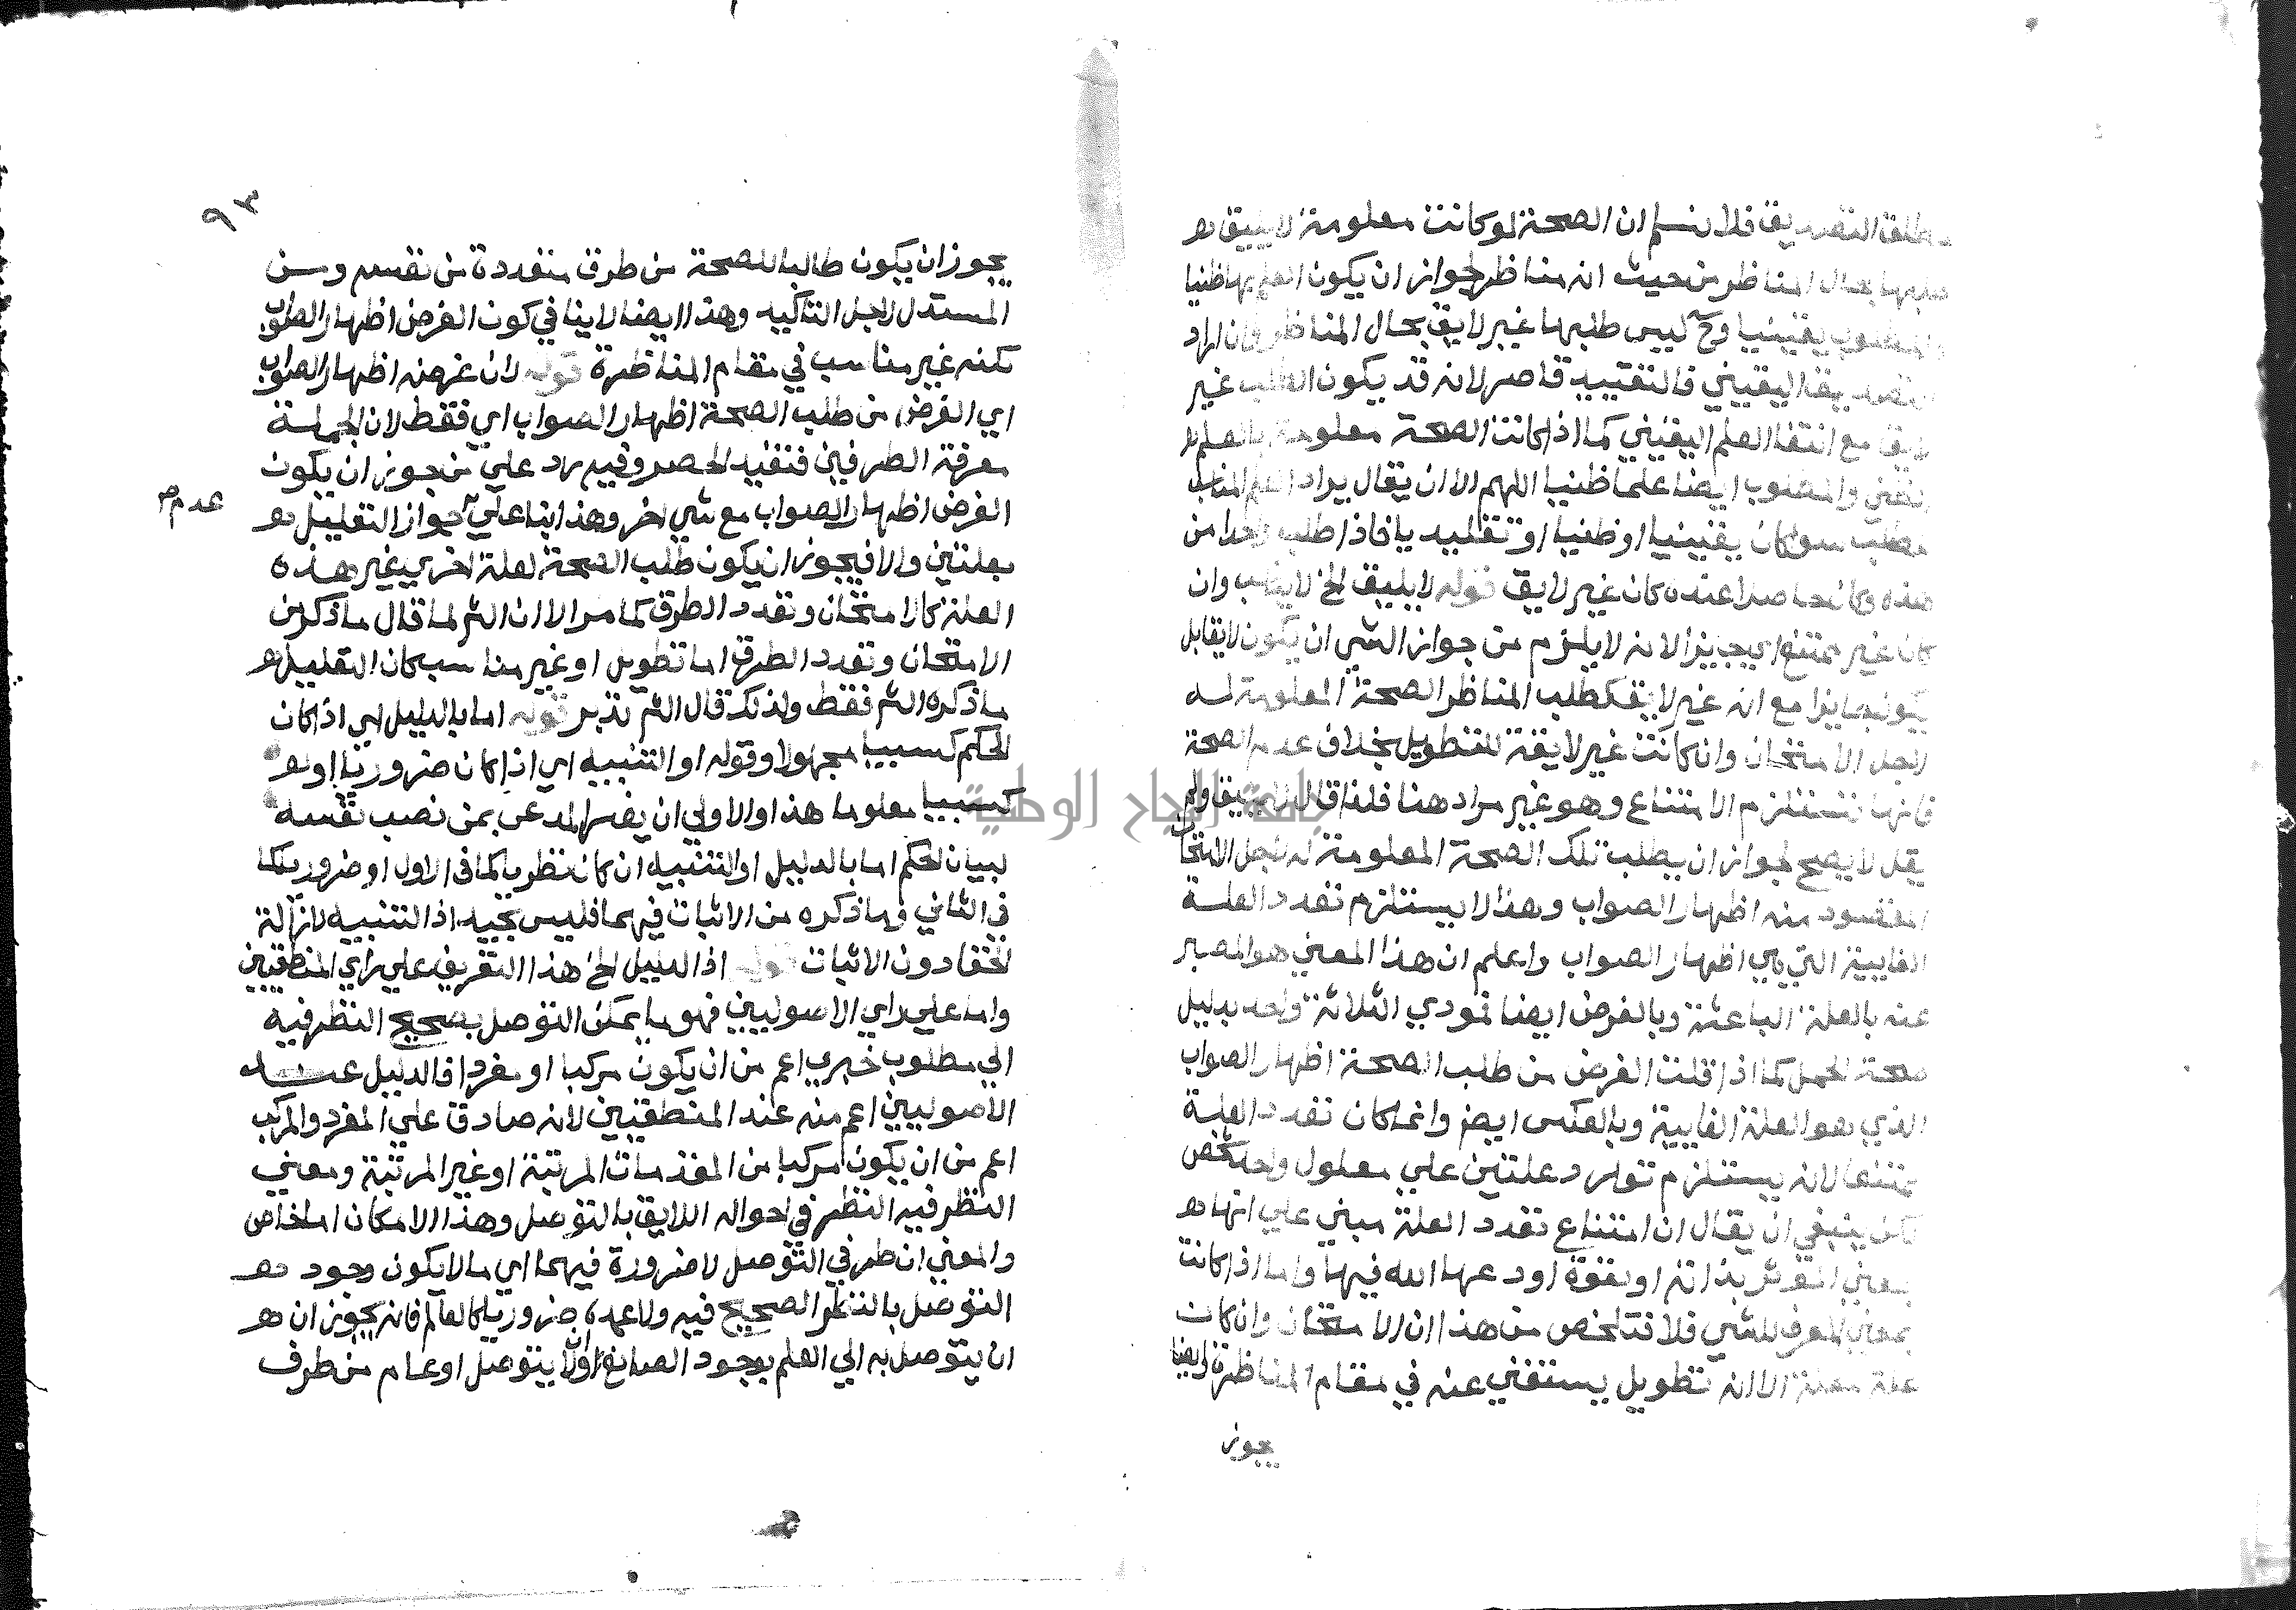 مطلق التصديق فلا نسلم ان الصحة لو كانت معلومة لا يليق
طلبها بحال المناظر من حيث انه مناظر لجواز ان يكون العلم بها ظنيا
والمطلوب يقينيا وح ليس طلبها غير لايق بحال المناظر وان اراد
التصديق اليقيني فالتقييد قاصر لانه قد يكون الطلب غير
لايق مع انتفا العلم اليقيني كما اذا كانت الصحة معلومة بالعلم
الظني والمطلوب ايضا علما ظنيا اللهم الا ان يقال يراد العلم المناسب
للطلب سوا كان يقينيا او ظنيا او تقليديا فاذا طلب واحدا من
هذه وكان حاصلا عنده كان غير لايق قوله لا يليق الخ لا يناسب وان
كان غير ممتنع اي يجيز الانه لا يلزم من جواز الشي ان يكون لايقا بل
يكون جايزا مع انه غير لايق كطلب المناظر الصحة المعلومة له
لاجل الامتحان وان كانت غير لايقة للتطويل بخلاف عدم الصحة
فانها تستلزم الامتناع وهو غير مراد هنا فلذا قال لا يليق ولم
يقل لا يصح لجواز ان يطلب تلك الصحة المعلومة له لاجل الامتحان
المقصود منه اظهار الصواب وهذا لا يستلزم تعدد العلة
الغايية التي هي اظهار الصواب واعلم ان هذا المعني هو المعبر
عنه بالعلة الباعثة وبالغرض ايضا فمودي الثلاثة واحد بدليل
صحة الحمل كما اذا قلت الغرض من طلب الصحة اظهار الصواب
الذي هو العلة الغايية وبالعكس ايضا وانما كان تعدد العلة
ممتنعا لانه يستلزم توارد علتين علي معلول واحد شخص
لكن ينبغي ان يقال ان امتناع تعدد العلة مبني علي انها
بمعني الموثر بذاته او بقوة اودعها الله فيها واما اذا كانت
بمعني المعرف للشي فلا فتلخص من هذا ان الامتحان وان كان
علة معلة الا انه تطويل يستغني عنه في مقام المناظرة وايضا
يجوز
٩٣
يجوز ان يكون طالبا للصحة من طرف متعددة من نفسه ومن
المستدل لاجل التاكيد وهذا ايضا لا ينافي كون الغرض اظهار الصواب
لكنه غير مناسب في مقام المناظرة قوله لان غرضه اظهار الصواب
اي الغرض من طلب الصحة اظهار الصواب اي فقط لان الجملة
معرفة الطرفين فتفيد الحصر وفيه رد علي من جوز ان يكون
الغرض اظهار الصواب مع شي اخر وهذا بنا علي جواز التعليل
عدم صح
بعلتين والا فيجوز ان يكون طلب الصحة لعلة اخري غير هذه
العلة كالامتحان وتعدد الطرق كما مر الا ان الشر لما قال ما ذكر من
الامتحان وتعدد الطرق اما تطويل او غير مناسب كان التعليل
ما ذكره الشر فقط ولذلك قال الشر تدبر قوله اما بالدليل اي اذا كان
الحكم كسبيا مجهولا وقوله او التنبيه اي اذا كان ضروريا او
كسبيا معلوما هذا والاولي ان يفسر المدعي بمن نصب نفسه
لبيان الحكم اما بالدليل او التنبيه ان كان نظريا كما في الاول او ضروريا كما
في الثاني وما ذكره من الاثبات فيهما فليس بجيد اذ التنبيه لازالة
الخفا دون الاثبات قوله اذ الدليل الخ هذا التعريف علي راي المنطقيين
واما علي راي الاصوليين فهو ما يمكن التوصل بصحيح النظر فيه
الي مطلوب خبري اعم من ان يكون مركبا او مفردا فالدليل عند
الاصوليين اعم منه عند المنطقيين لانه صادق علي المفرد والمركب
اعم من ان يكون مركبا من المقدمات المرتبة او غير المرتبة ومعني
النظر فيه النظر في احواله اللايق بالتوصل وهذا الامكان اما خاص
والمعني ان طرفي التوصل لا ضرورة فيهما اي ما لا يكون وجود
التوصل بالنظر الصحيح فيه ولا عدمه ضروريا كالعالم فانه يجوز ان
ان يتوصل به الي العلم بوجود الصانع وان لا يتوصل او عام من طرف